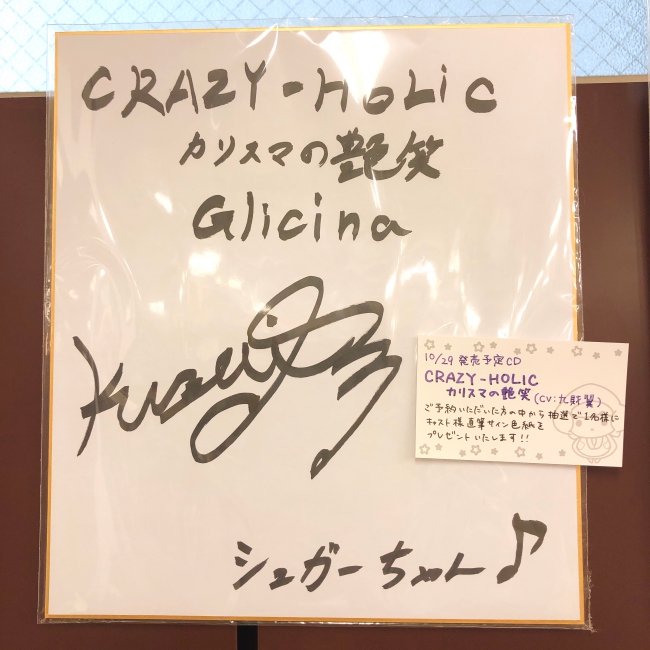 CRAZY-HoLic
カリスマの艶笑
Glicina
シュガーちゃん♪
10/29 発売予定CD
CRAZY-HOLIC
カリスマの艶笑(CV:九財翼)
ご予約いただいた方の中から抽選で1名様に
キャスト様直筆サイン色紙を
プレゼントいたします!!